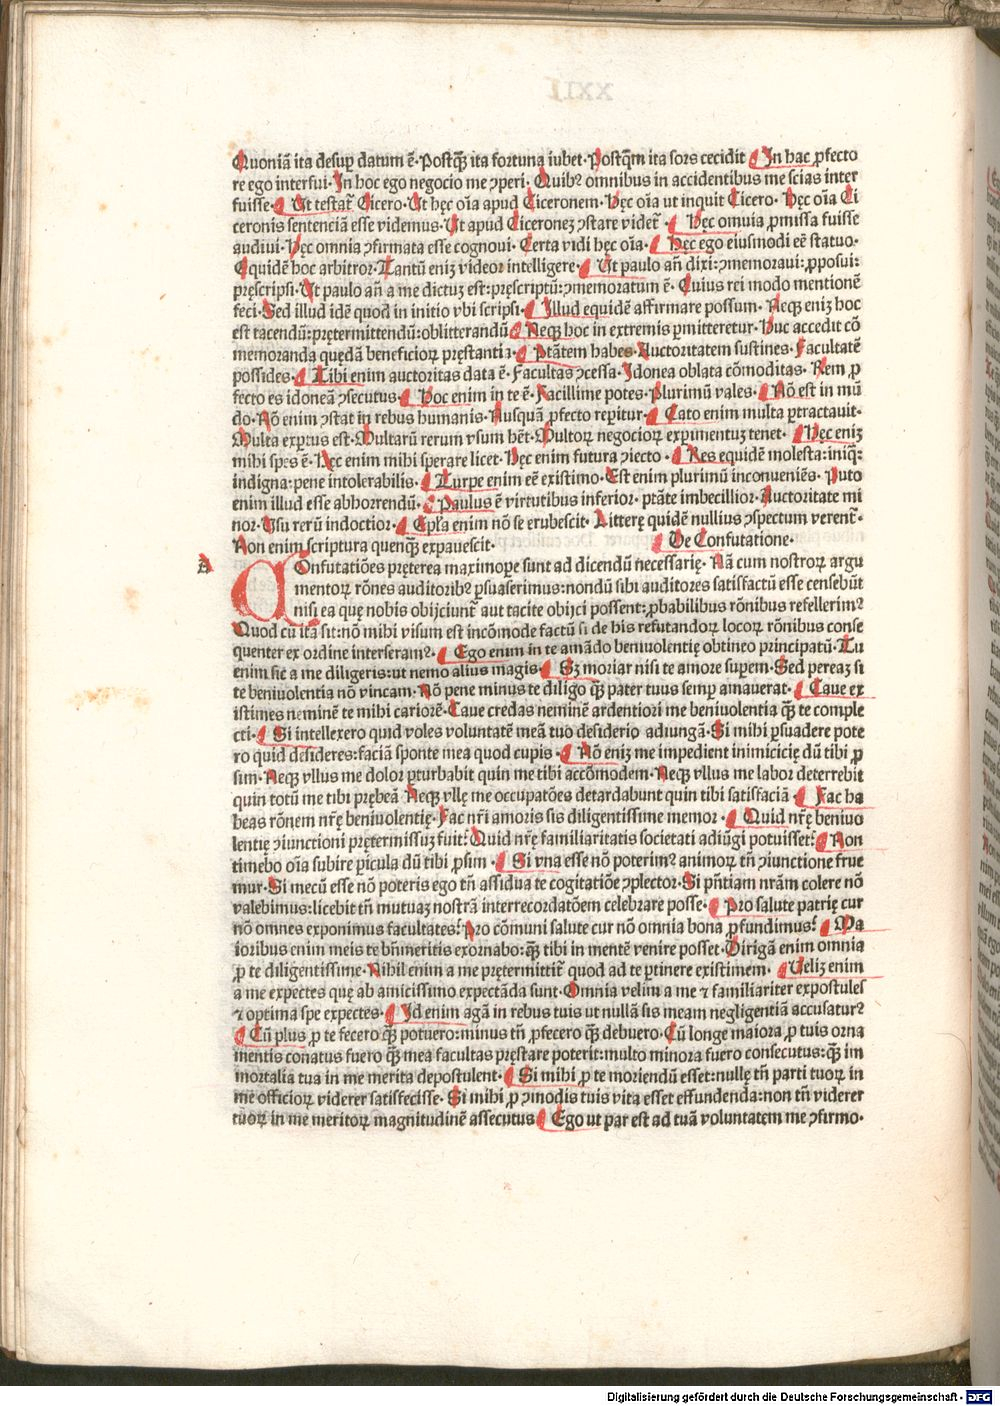 Quoniā ita desuꝑ datum ē· Postq̄ꝫ ita fortuna iubet· Postq̄m ita sors cecidit ¶ In hac ꝓfecto
re ego interfui· In hoc ego negocio me ꝯperi· Quibꝰ omnibus in accidentibus me scias inter
fuisse· ¶ Ut testat̄ Cicero· Ut hęc oīa apud Ciceronem· Hęc oīa ut inquit Cicero· Hęc oīa Ci
ceronis sentenciā esse videmus· Ut apud Ciceroneꝫ ꝯstare videt̄ · ¶ Hęc omnia ꝓmissa fuisse
audiui· Hęc omnia ꝯfirmata esse cognoui· Certa vidi hęc oīa· ¶ Hęc ego eiusmodi eē statuo·
Equidē hoc arbitror· Tantū eniꝫ videor intelligere· ¶ Ut paulo an̄ dixi: ꝯmemoraui: ꝓposui:
pręscripsi· Ut paulo an̄ a me dictuꝫ est: pręscriptū: ꝯmemoratum ē· Cuius rei modo mentionē
feci· Sed illud idē quod in initio vbi scripsi· ¶ Illud equidē affirmare possum· Neqꝫ eniꝫ hoc
est tacendū: prętermittendū: oblitterandū ¶ Neqꝫ hoc in extremis ꝑmitteretur· Huc accedit cō
memoranda quędā beneficioꝝ pręstantia· ¶ Ptātem habes· Auctoritatem sustines· Facultatē
possides· ¶ Tibi enim auctoritas data ē· Facultas ꝯcessa· Idonea oblata cōmoditas· Rem ꝓ
fecto es idoneā ꝯsecutus· ¶ Hoc enim in te ē· Facillime potes· Plurimū vales· ¶ Nō est in mū
do· Nō enim ꝯstat in rebus humanis· Nusquā ꝓfecto reꝑitur· ¶ Cato enim multa ꝑtractauit·
Multa exꝑtus est· Multarū rerum vsum hēt· Multoꝝ negocioꝝ exꝑimentuꝫ tenet· ¶ Hęc eniꝫ
mihi spes ē· Hęc enim mihi sperare licet· Hęc enim futura ꝯiecto · ¶ Res equidē molesta: iniq̄:
indigna: pene intolerabilis· ¶ Turpe enim eē existimo· Est enim plurimū inconueniēs· Puto
enim illud esse abhorrendū· ¶ Paulus ē virtutibus inferior· ptāte imbecillior· Auctoritate mi
nor· Usu rerū indoctior· ¶ Epl̄a enim nō se erubescit· Litterę quidē nullius ꝯspectum verent̄·
Non enim scriptura quenq̄ꝫ expauescit· ¶ De Confutatione·
A
COnfutatiōes pręterea maximopere sunt ad dicendū necessarię· Nā cum nostroꝝ argu
mentoꝝ rōnes auditoribꝰ ꝑsuaserimus: nondū sibi auditores satisfactū esse censebūt
nisi ea quę nobis obijciunt̄ aut tacite obijci possent: ꝓbabilibus rōnibus refellerimꝰ
Quod cū ita sit: nō mihi visum est incōmode factū si de his refutandoꝝ locoꝝ rōnibus conse
quenter ex ordine interseramꝰ· ¶ Ego enim in te amādo beniuolentię obtineo principatū· Tu
enim sic a me diligeris: ut nemo alius magis· ¶ Sꝫ moriar nisi te amore suꝑem· Sed pereaꝫ si
te beniuolentia nō vincam· Nō pene minus te diligo q̄ꝫ pater tuus semꝑ amauerat· ¶ Caue ex
istimes neminē te mihi cariorē· Caue credas neminē ardentiori me beniuolentia q̄ꝫ te comple
cti· ¶ Si intellexero quid voles voluntatē meā tuo desiderio adiungā· Si mihi ꝑsuadere pote
ro quid desideres: faciā sponte mea quod cupis· ¶ Nō eniꝫ me impedient inimicicię dū tibi ꝓ
sim· Neqꝫ vllus me dolor ꝑturbabit quin me tibi accōmodem· Neqꝫ vllus me labor deterrebit
quin totū me tibi prębeā Neqꝫ vllę me occupatōes detardabunt quin tibi satisfaciā · ¶ Fac ha
beas rōnem nr̄ę beniuolentię· Fac nr̄i amoris sis diligentissime memor · ¶ Quid nr̄ę beniuo
lentię ꝯiunctioni prętermissuꝫ fuit? Quid nr̄ę familiaritatis societati adiūgi potuisset? ¶ Non
timebo oīa subire ꝑicula dū tibi ꝓsim · ¶ Si vna esse nō poterimꝰ animoꝝ tn̄ ꝯiunctione frue
mur· Si mecū esse nō poteris ego tn̄ assidua te cogitatiōe ꝯplector· Si pn̄tiam nrām colere nō
valebimus: licebit tn̄ mutuaꝫ nostrā interrecordatōem celebrare posse· ¶ Pro salute patrię cur
nō omnes exponimus facultates? Pro cōmuni salute cur nō omnia bona ꝓfundimus? ¶ Ma
ioribus enim meis te bn̄meritis exornabo: q̄ꝫ tibi in mentē venire posset· Dirigā enim omnia
ꝓ te diligentissime· Nihil enim a me prętermittit̄ quod ad te ꝑtinere existimem· ¶ Uelīꝫ enim
a me expectes quę ab amicissimo expectāda sunt· Omnia velim a me ⁊ familiariter expostules
⁊ optima spe expectes· ¶ Id enim agā in rebus tuis ut nullā sis meam negligentiā accusaturꝰ
¶ Cū plus ꝓ te fecero q̄ꝫ potuero: minus tn̄ ꝓfecero q̄ꝫ debuero· Cū longe maiora ꝓ tuis orna
mentis conatus fuero q̄ꝫ mea facultas pręstare poterit: multo minora fuero consecutus: q̄ꝫ im
mortalia tua in me merita depostulent· ¶ Si mihi ꝓ te moriendū esset: nullę tn̄ parti tuoꝝ in
me officioꝝ viderer satisfecisse· Si mihi ꝓ ꝯmodis tuis vita esset effundenda: non tn̄ viderer
tuoꝝ in me meritoꝝ magnitudinē assecutus ¶ Ego ut par est ad tuā voluntatem me ꝯfirmo·
Digitalisierung gefördert durch die Deutsche Forschungsgemeinschaft - DFG